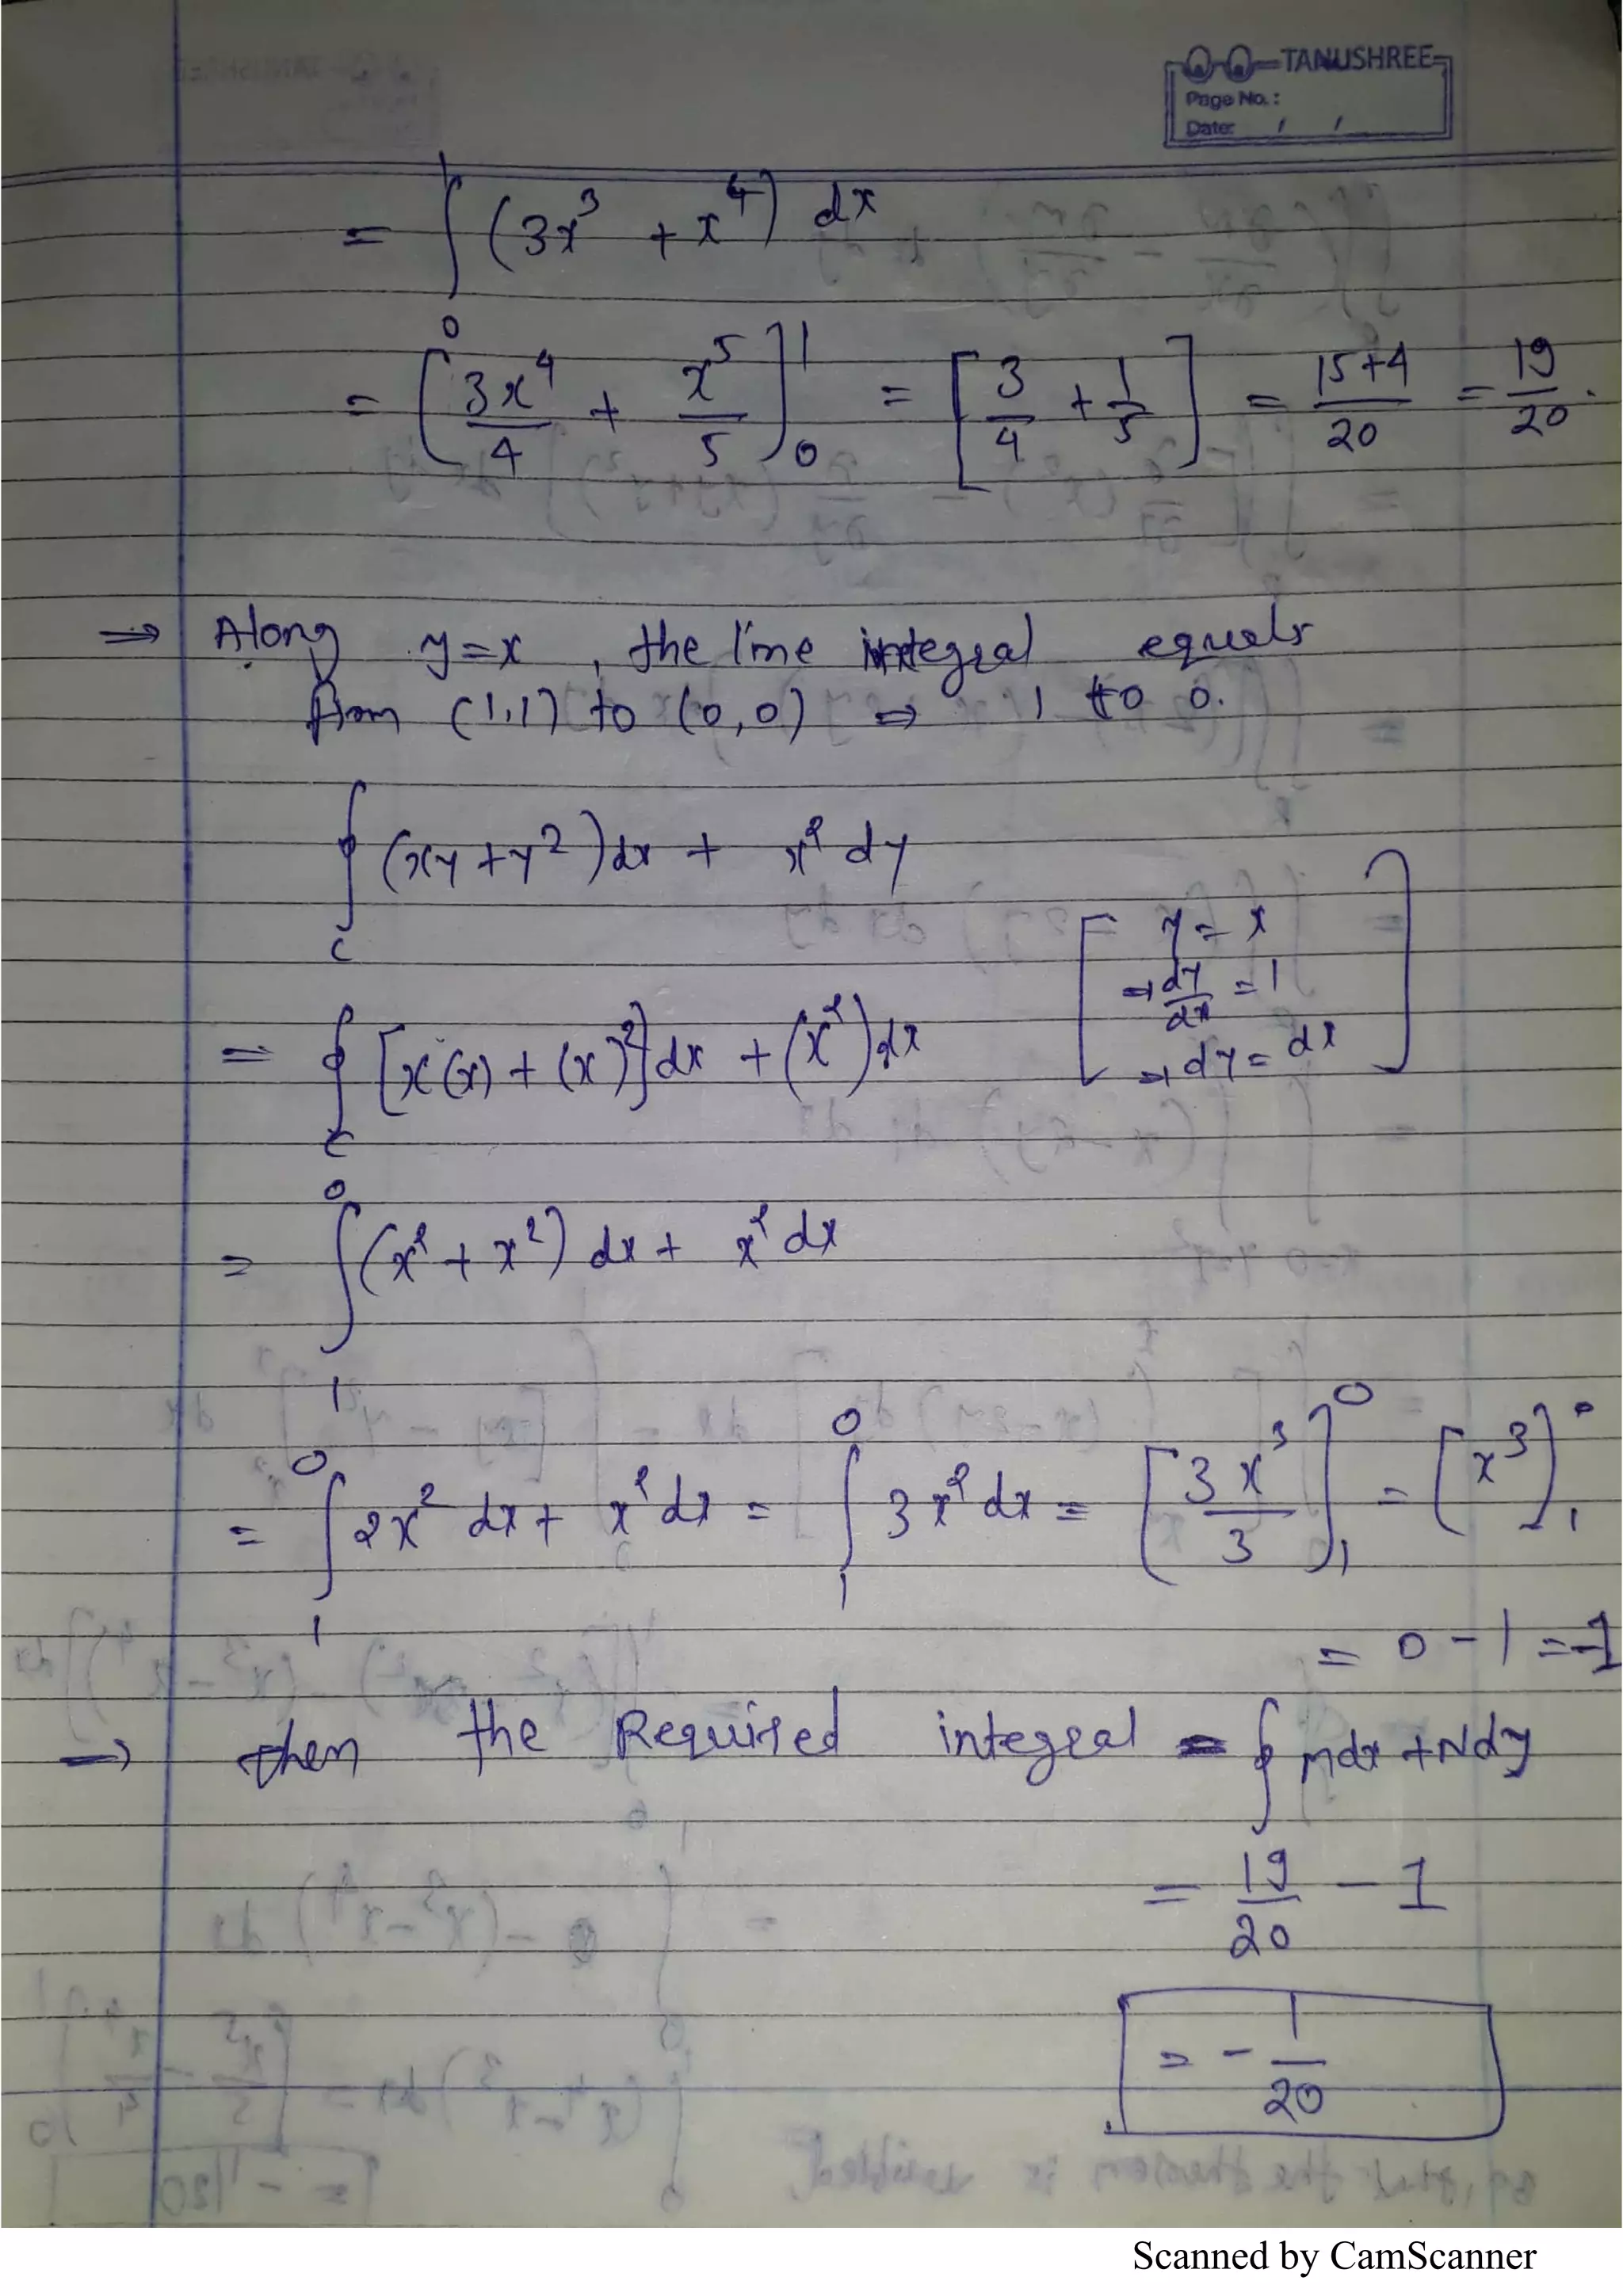 TANUSHREE
Page No.:
Date: / /
= ∫₀¹ (3x³ + x⁴) dx
= [3x⁴/4 + x⁵/5]₀¹ = [3/4 + 1/5] = 15+4/20 = 19/20.
⇒ Along y=x, the line integral equals
from (1,1) to (0,0) ⇒ 1 to 0.
∮c (xy+y²)dx + x²dy
[y = x
⇒ dy/dx = 1
= ∮c [x(x) + (x)²]dx + (x²)dx
⇒ dy = dx]
= ∫₁⁰ (x² + x²) dx + x² dx
= ∫₁⁰ 2x² dx + x² dx = ∫₁⁰ 3x² dx = [3x³/3]₁⁰ = [x³]₁⁰
= 0 - 1 = -1
⇒ then the Required integral = ∮ Mdx + Ndy
= 19/20 - 1
= - 1/20
Scanned by CamScanner